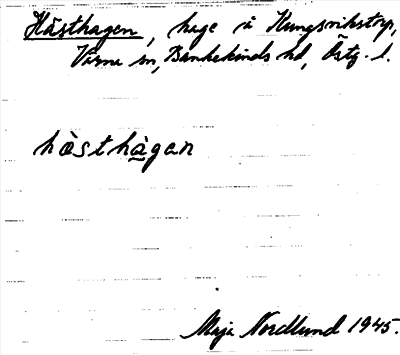 Hästhagen, hage å Kungsvikstorp,
Värna sn, Bankekinds hd, Östg. l.
hàsthàgan
Maja Nordlund 1945.